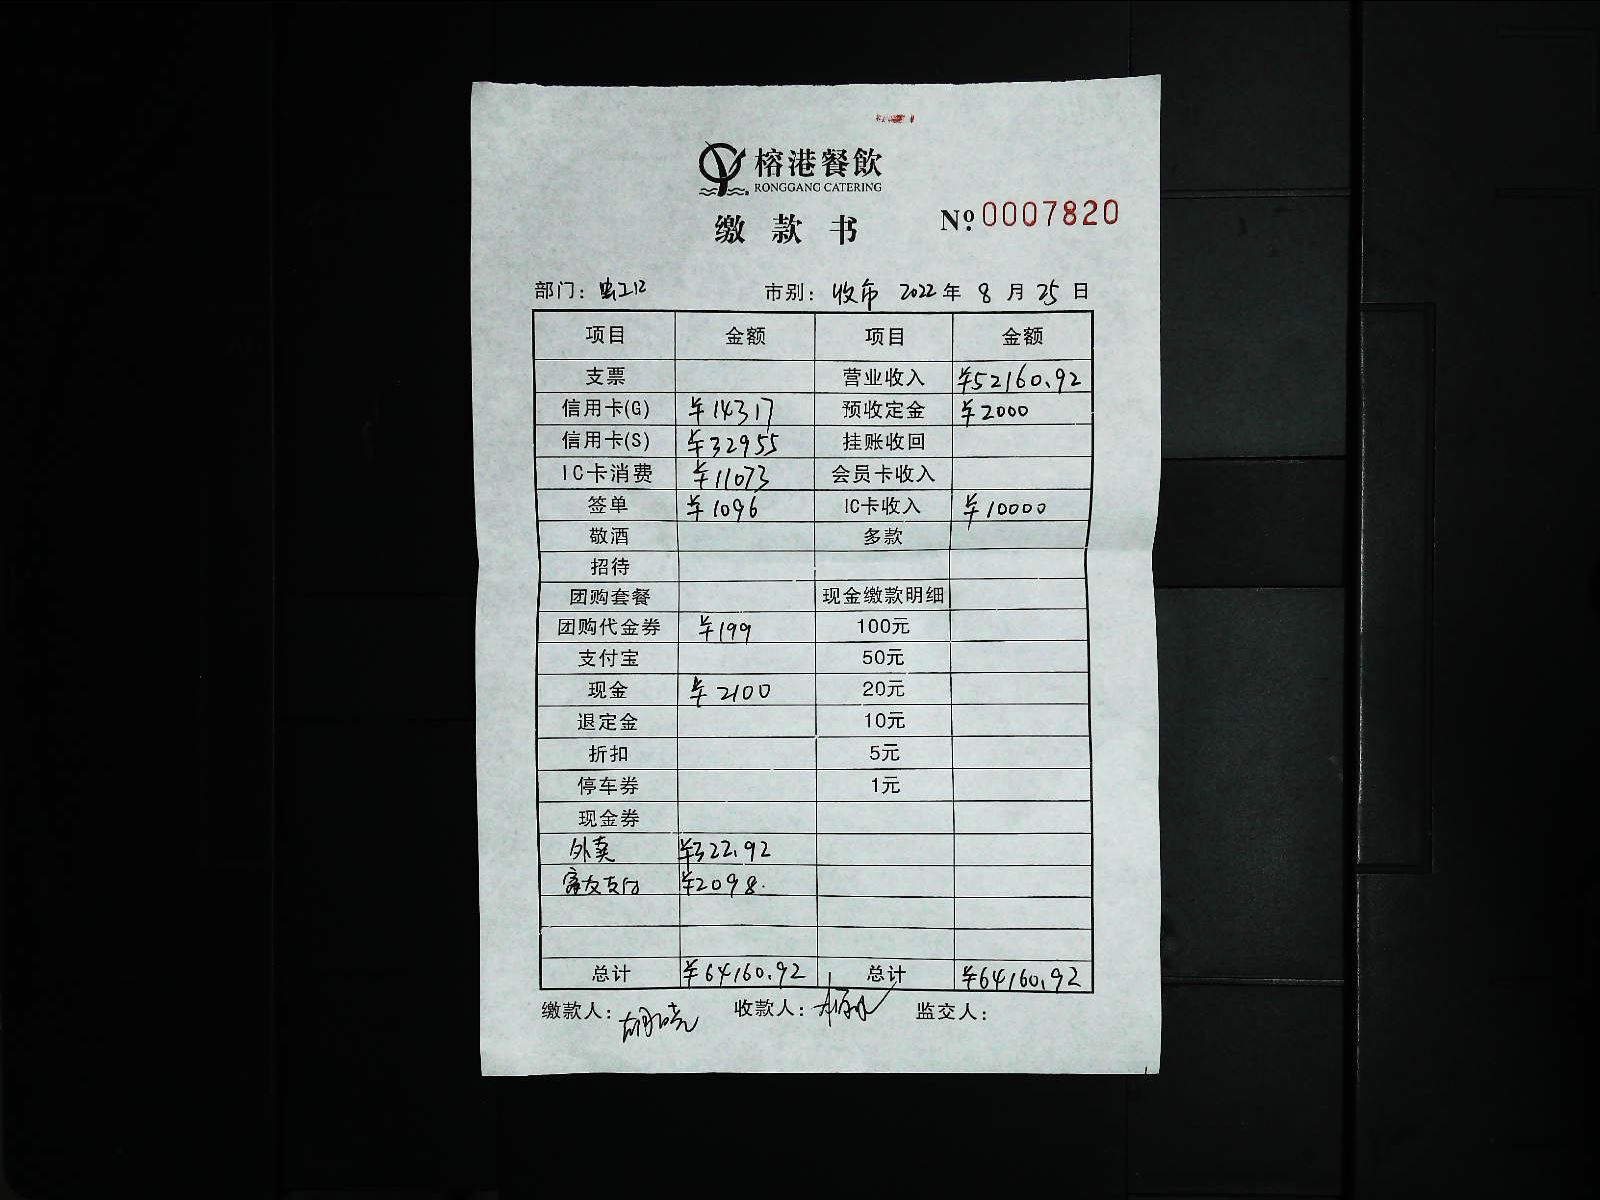 榕港餐飲
RONGGANG CATERING
缴款书
Nº.0007820
部门: 虹口 市别: 收市 2022年 8月 25日
项目 金额 项目 金额
支票 营业收入 ¥52160.92
信用卡(G) ¥14317 预收定金 ¥2000
信用卡(S) ¥32955 挂账收回
IC卡消费 ¥11073 会员卡收入
签单 ¥1096 IC卡收入 ¥10000
敬酒 多款
招待
团购套餐 现金缴款明细
团购代金券 ¥199 100元
支付宝 50元
现金 ¥2100 20元
退定金 10元
折扣 5元
停车券 1元
现金券
外卖 ¥322.92
富友支付 ¥2098.
总计 ¥64160.92 总计 ¥64160.92
缴款人: 收款人: 监交人: